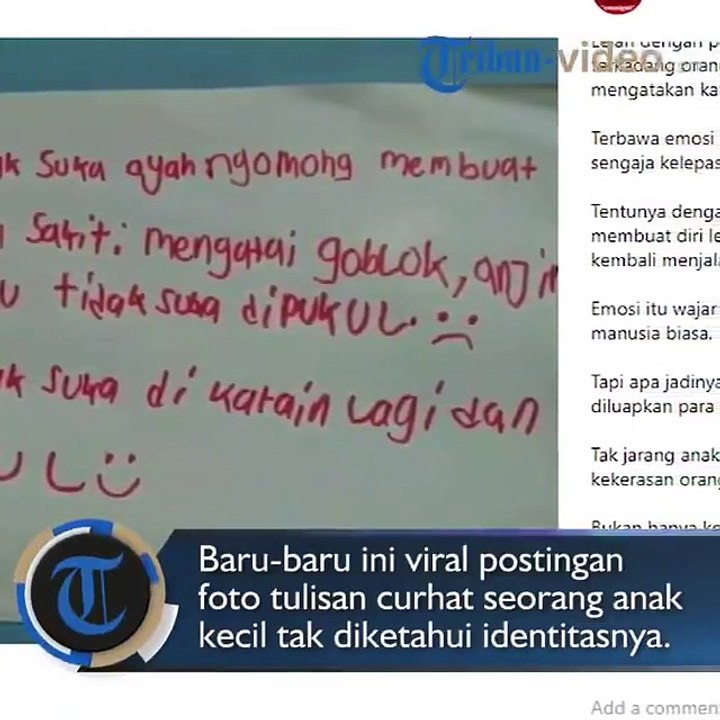 Tribun-video
suka ayah ngomong membuat
sakit: mengatai goblok, anjin
tidak suka dipukul. :(
suka di katain lagi dan
UL :)
terkadang oran
mengatakan ka
Terbawa emosi
sengaja kelepas
Tentunya denga
membuat diri le
kembali menjala
Emosi itu wajar
manusia biasa.
Tapi apa jadinya
diluapkan para
Tak jarang anak
kekerasan orang
Baru-baru ini viral postingan
foto tulisan curhat seorang anak
kecil tak diketahui identitasnya.
Add a commen